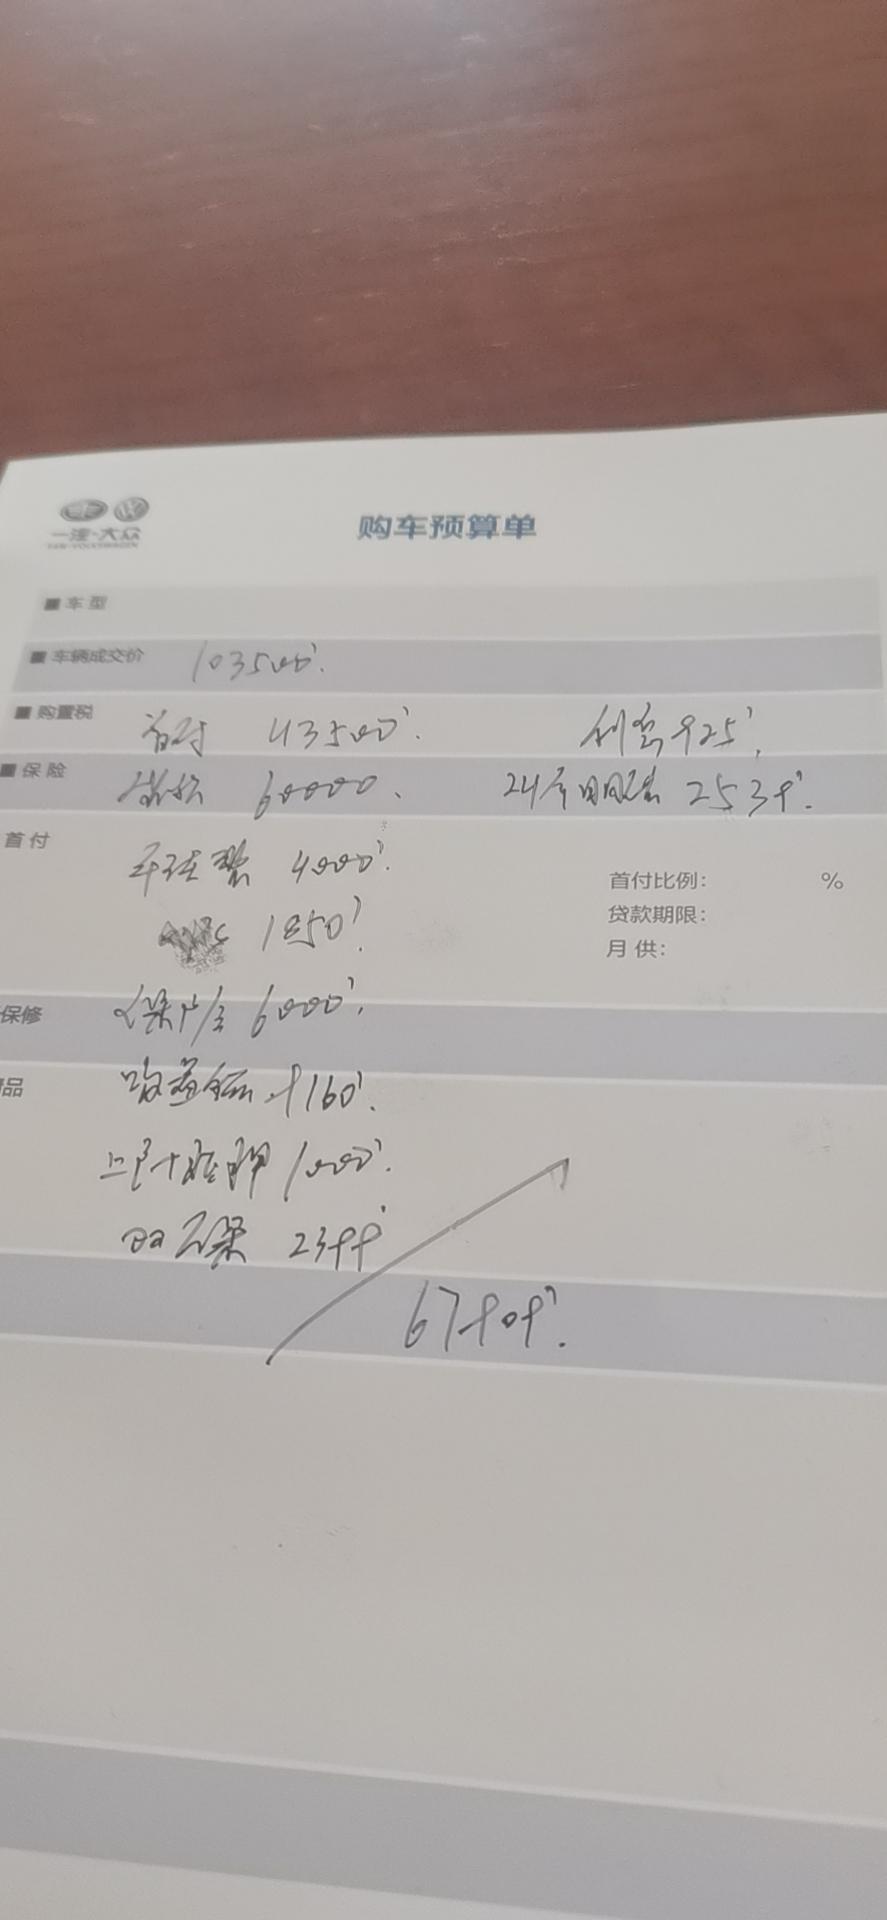 一汽-大众
FAW-VOLKSWAGEN
购车预算单
■ 车型
■ 车辆成交价 103500
■ 购置税 首付 43500 利息925
■ 保险 贷款 60000 24个月月供 2539
首付 手续费 4000
首付比例: %
1850
贷款期限:
月供:
保修 6000
品 购置税 9160
上牌+抵押 1000
2399
67909